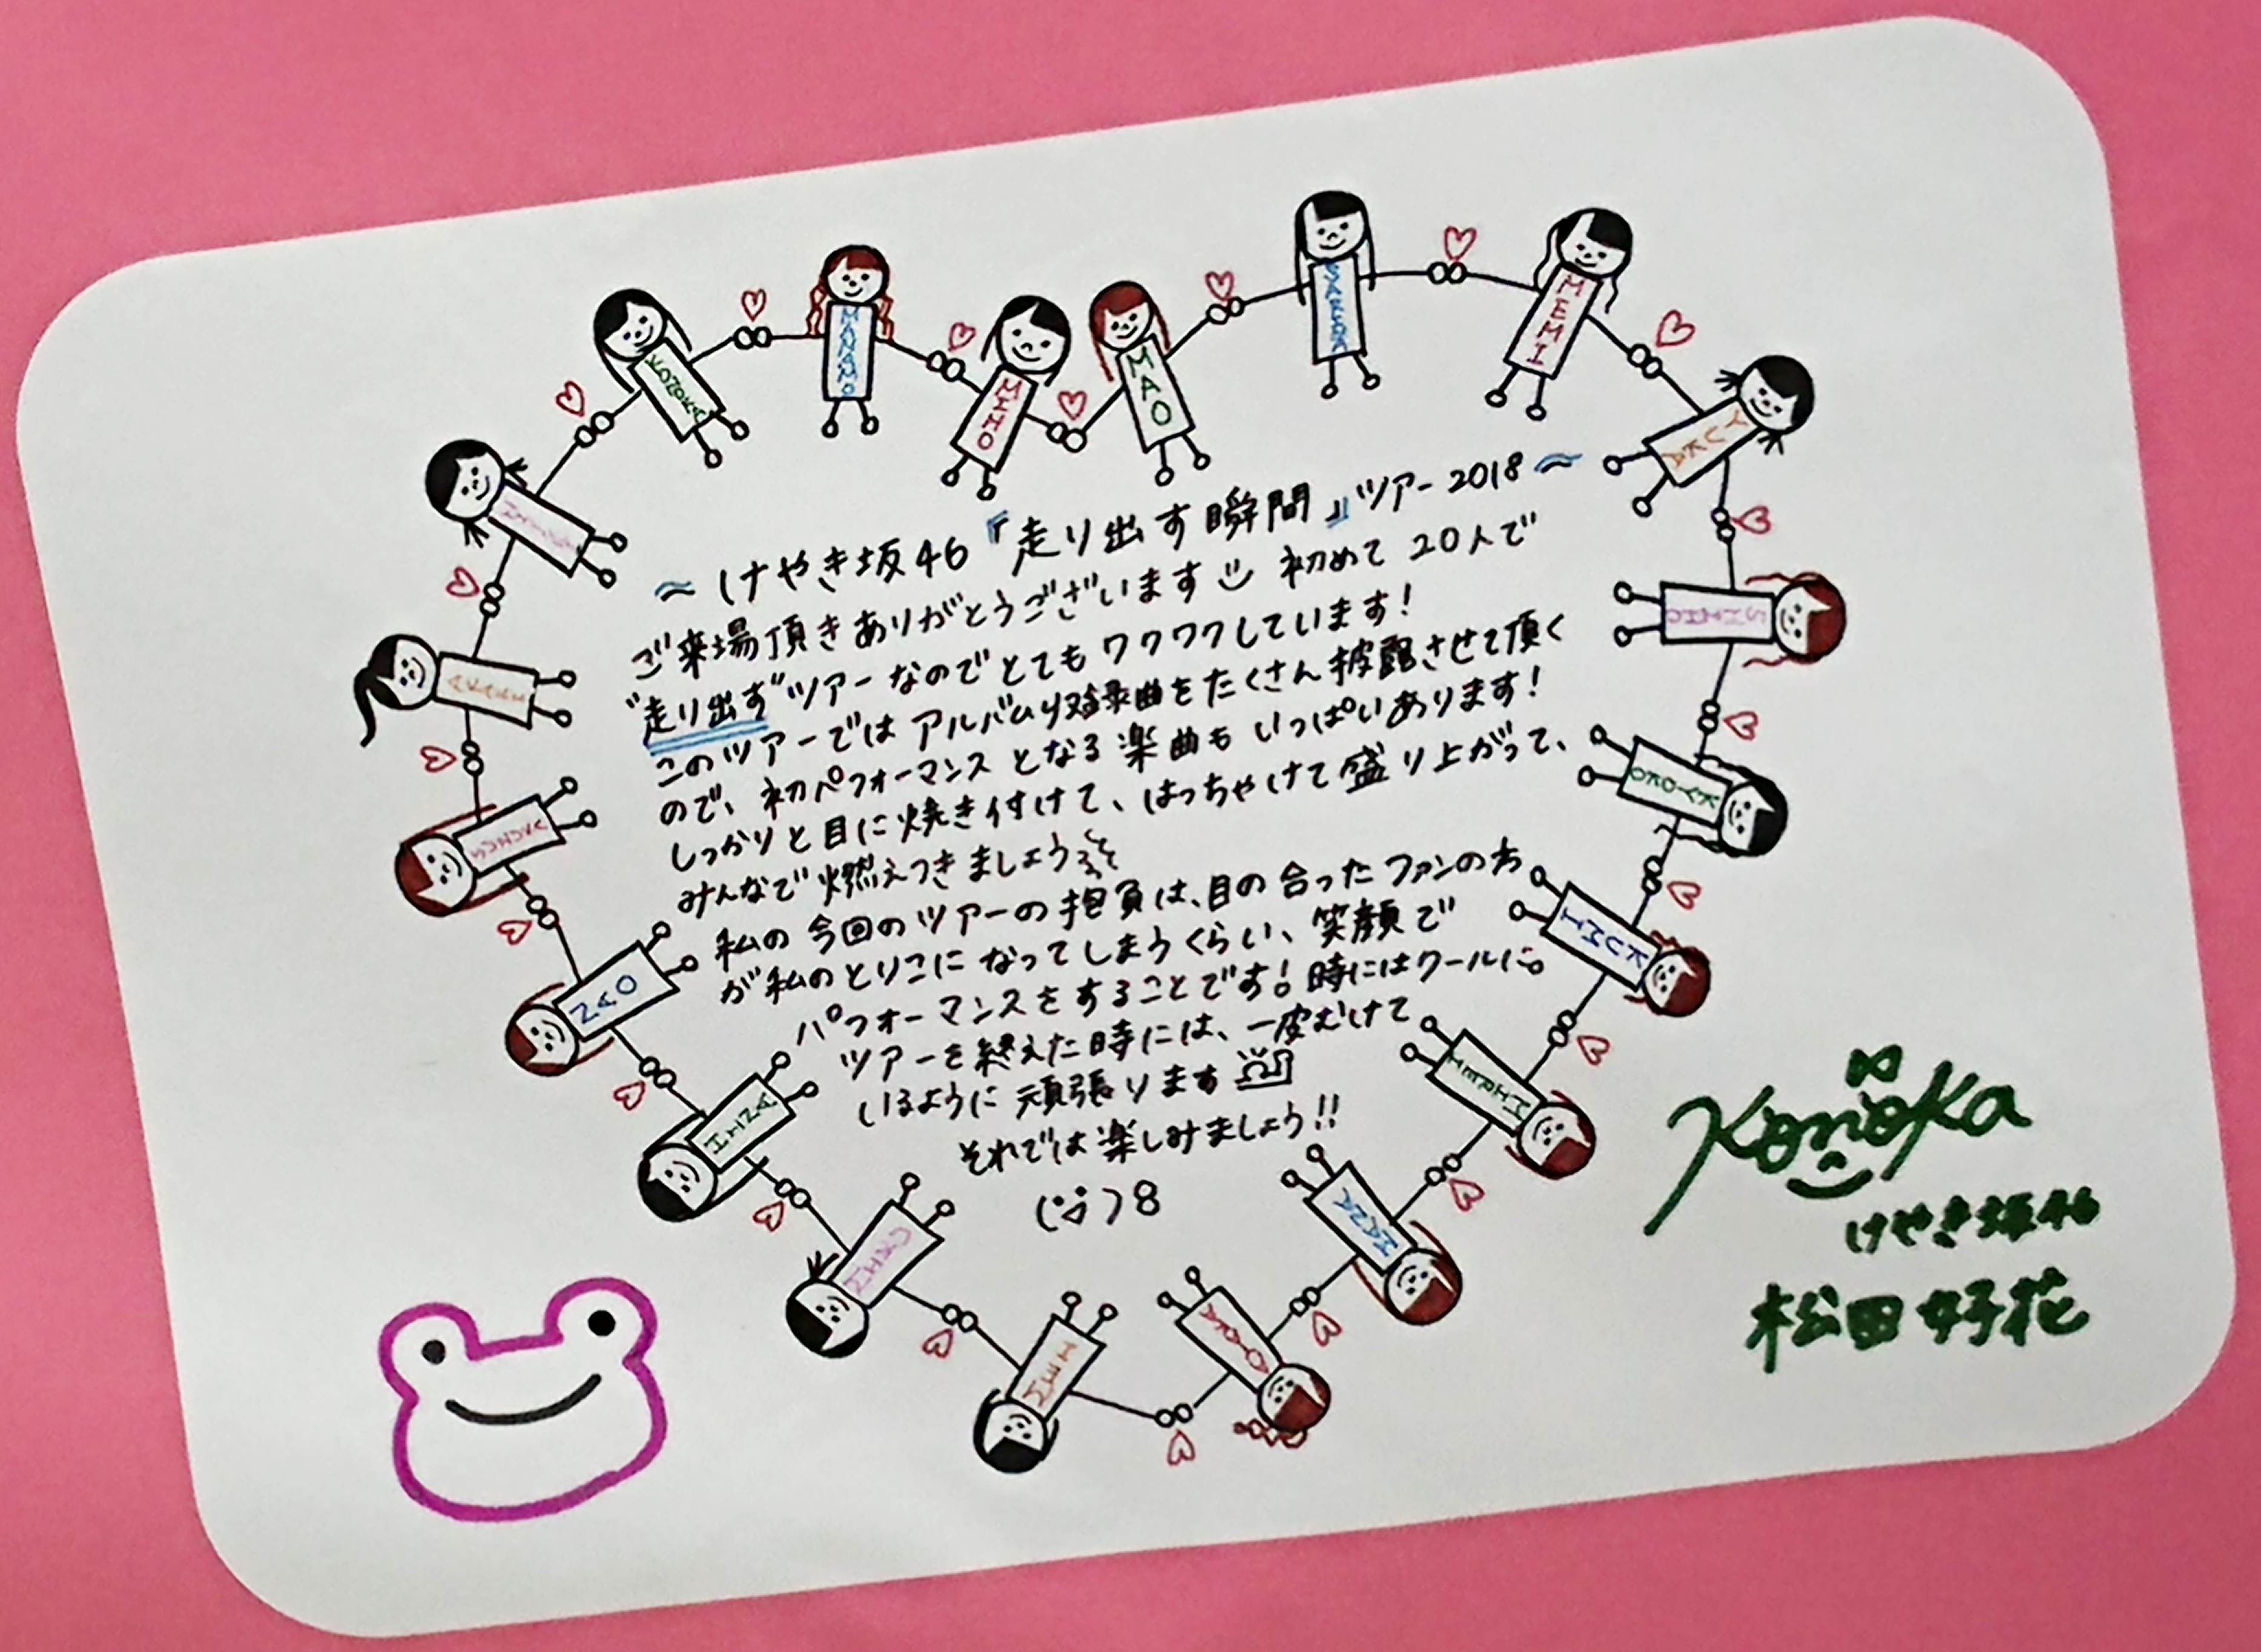 KONOKA
MANAMO
MIHO
MAO
SAEEDA
MEMI
YUKA
SHIHO
KYOKO
KUMI
MIREI
KANA
AYAKA
MEI
HINA
NAO
~けやき坂46『走り出す瞬間』ツアー2018~
ご来場頂きありがとうございます 初めて20人で
“走り出す”ツアーなのでとてもワクワクしています!
このツアーではアルバム収録曲をたくさん披露させて頂く
ので、初パフォーマンスとなる楽曲もいっぱいあります!
しっかりと目に焼き付けて、はっちゃけて盛り上がって、
みんなで燃えつきましょう
私の今回のツアーの抱負は、目の合ったファンの方
が私のとりこになってしまうくらい、笑顔で
パフォーマンスをすることです!時にはクールに。
ツアーを終えた時には、一皮むけて
いるように頑張ります
それでは楽しみましょう!!
Konoka
けやき坂46
松田好花